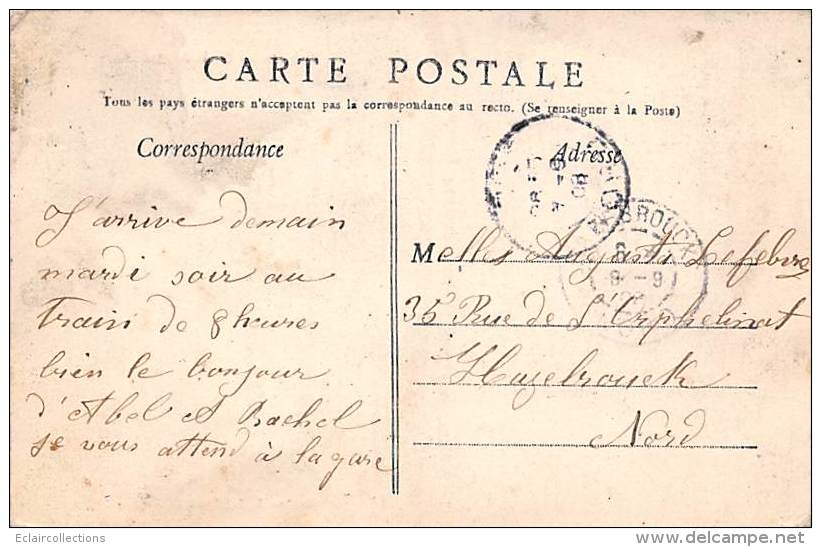 CARTE POSTALE
Tous les pays étrangers n'acceptent pas la correspondance au recto. (Se renseigner à la Poste)
Correspondance
Adresse
J'arrive demain
mardi soir au
train de 8 heures
bien le bonjour
d'Abel & Rachel
je vous attend à la gare
Melles Augusta Lefebvre
35 Rue de l'Orphelinat
Hazebrouck
Nord
Eclaircollections
delcampe.net